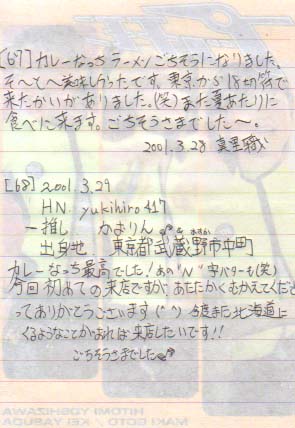 [67] カレーなっちラーメンごちそうになりました、
そ〜と〜美味しかったです。東京から18切符で
来たかいがありました。(笑)また夏あたりに
食べに来ます。ごちそうさまでした〜。
2001.3.28 真里職人
[68] 2001.3.29
HN. yukihiro417
一推し かおりん
出身地 東京都武蔵野市中町
カレーなっち最高でした!あの"N"字バターも(笑)
今回初めての来店ですが、あたたかくむかえてくださ
ってありがとうございます(^^)今度また北海道に
くるようなことがあれば来店したいです!!
ごちそうさまでした
HITOMI YOSHIZAWA
MAKI GOTO / KEI YASUDA